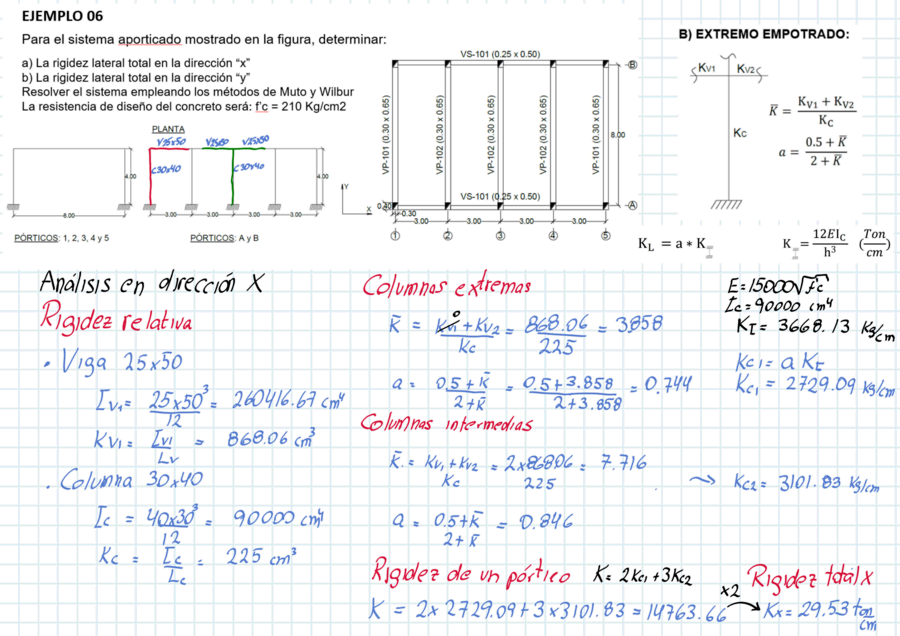 EJEMPLO 06
Para el sistema aporticado mostrado en la figura, determinar:
a) La rigidez lateral total en la dirección “x”
b) La rigidez lateral total en la dirección “y”
Resolver el sistema empleando los métodos de Muto y Wilbur
La resistencia de diseño del concreto será: f'c = 210 Kg/cm2
PLANTA
V25x50 V25x50 V25x50
C30x40 C30x40
4.00 4.00
6.00
3.00 3.00 3.00 3.00
PÓRTICOS: 1, 2, 3, 4 y 5
PÓRTICOS: A y B
Y
X
VS-101 (0.25 x 0.50)
B
VP-101 (0.30 x 0.65)
VP-102 (0.30 x 0.65)
VP-102 (0.30 x 0.65)
VP-102 (0.30 x 0.65)
VP-101 (0.30 x 0.65)
8.00
VS-101 (0.25 x 0.50)
A
0.40
0.30
3.00 3.00 3.00 3.00
1 2 3 4 5
B) EXTREMO EMPOTRADO:
KV1 KV2
Kc
K̅ = (KV1 + KV2) / KC
a = (0.5 + K̅) / (2 + K̅)
KL = a * K
K = 12EIC / h³ (Ton/cm)
Análisis en dirección X
Rigidez relativa
• Viga 25x50
Iv1 = 25x50³/12 = 260416.67 cm⁴
Kv1 = Iv1/Lv = 868.06 cm³
• Columna 30x40
Ic = 40x30³/12 = 90000 cm⁴
Kc = Ic/Lc = 225 cm³
Columnas extremas
K̅ = Kv1 + Kv2 / Kc = 868.06/225 = 3.858
0
a = 0.5 + K̅ / 2+K̅ = 0.5+3.858 / 2+3.858 = 0.744
Columnas intermedias
K̅ = Kv1 + Kv2 / Kc = 2x868.06 / 225 = 7.716
a = 0.5+K̅ / 2+K̅ = 0.846
E=15000√f'c
Ic = 90000 cm⁴
KI = 3668.13 Kg/cm
Kc1 = a KI
Kc1 = 2729.09 Kg/cm
→ Kc2 = 3101.83 Kg/cm
Rigidez de un pórtico K = 2Kc1 + 3Kc2
K = 2x2729.09+3x3101.83 = 14763.66
x2
Rigidez total X
Kx = 29.53 ton/cm